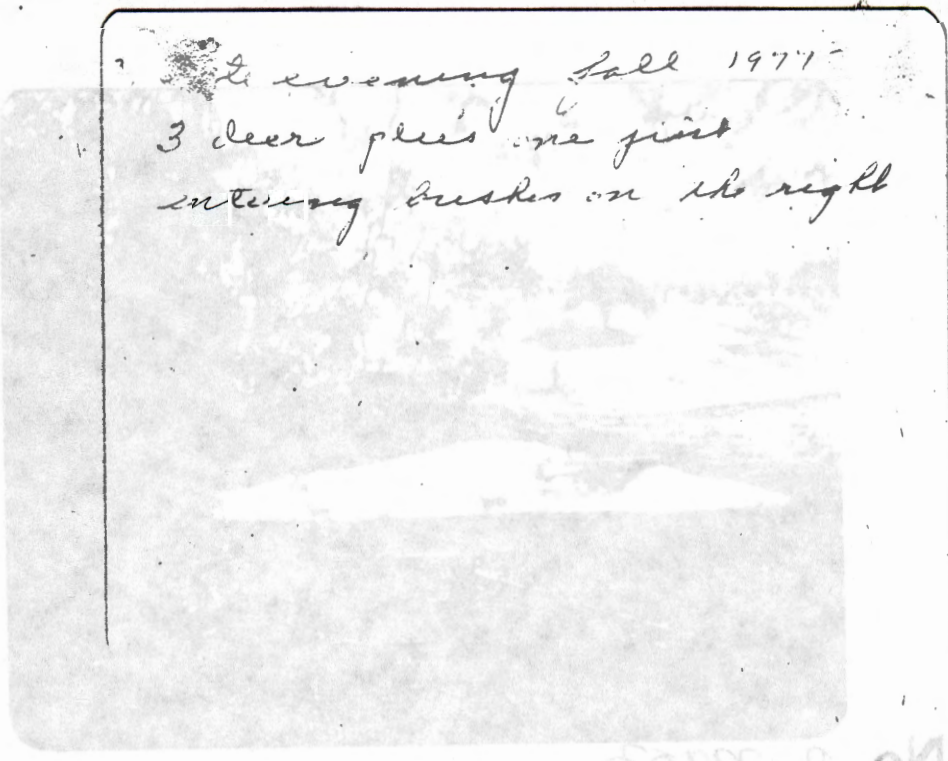 evening fall 1977
3 deer plus one just
entering bushes on the right